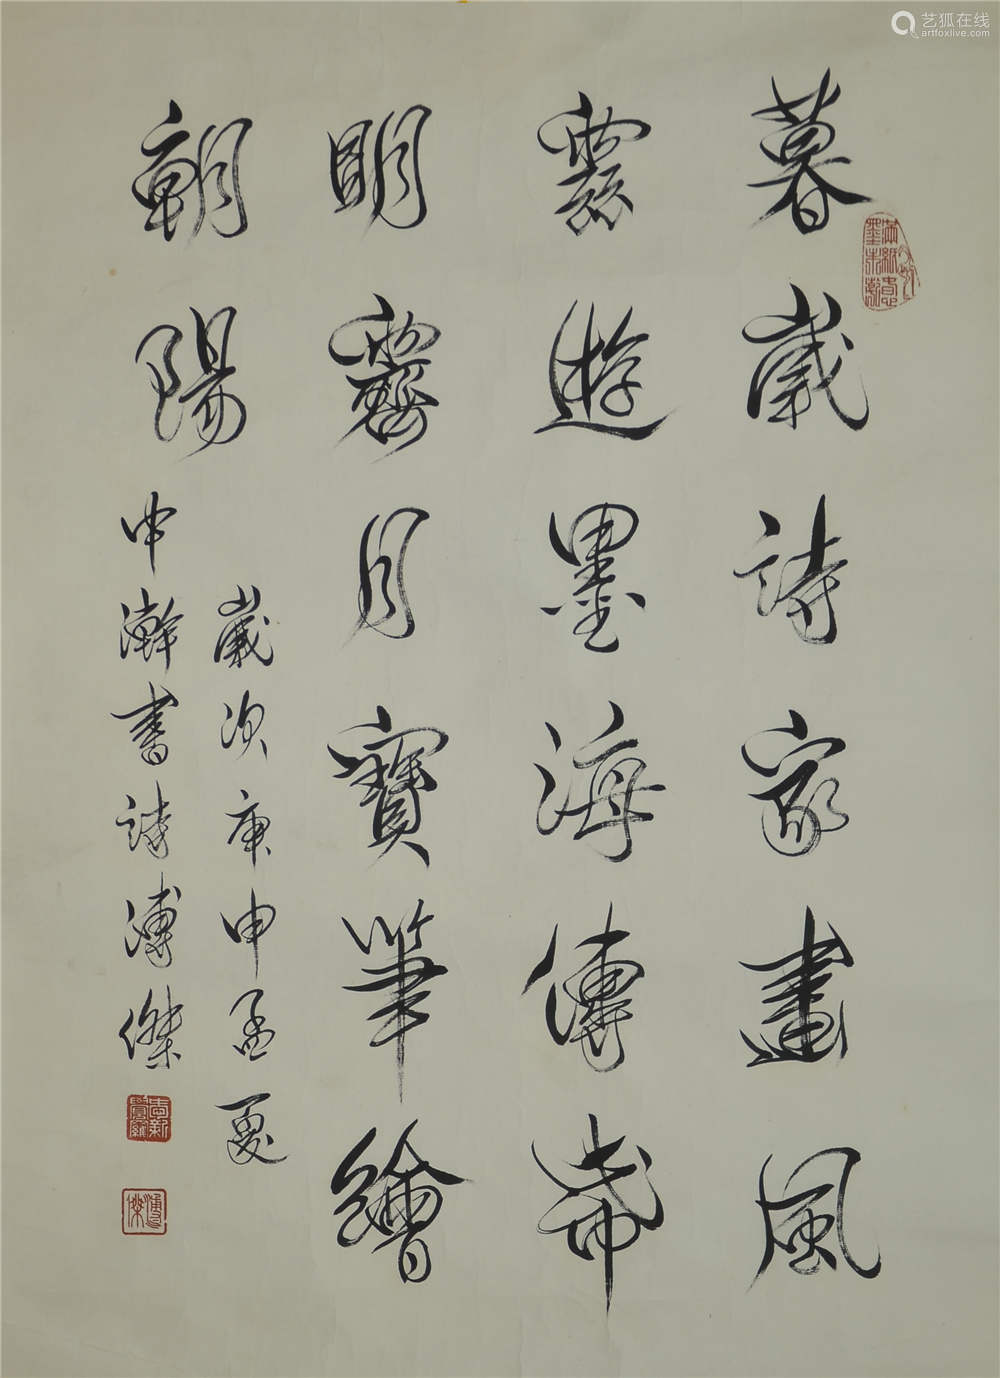 暮歲詩家畫風
雲遊墨海傳歲
明霽月寶筆繪
朝陽
歲次庚申孟夏
中瀚書詩溥傑
溥傑
艺狐在线
artfoxlive.com